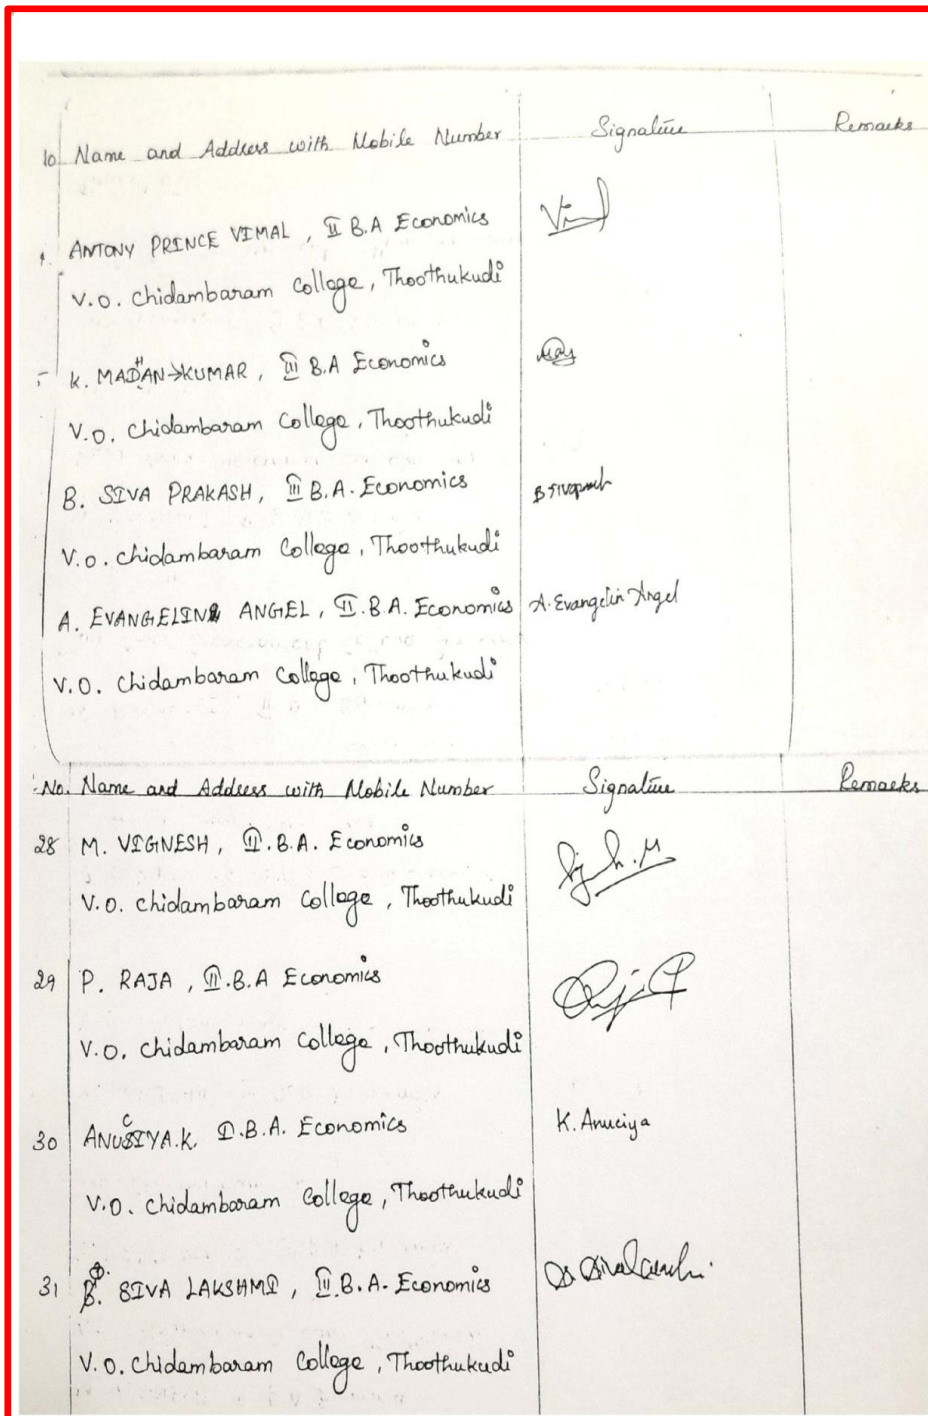 No Name and Address with Mobile Number Signature Remarks
ANTONY PRINCE VIMAL, II B.A Economics
V.O. Chidambaram College, Thoothukudi
K. MADHAN KUMAR, III B.A Economics
V.O. Chidambaram College, Thoothukudi
B. SIVA PRAKASH, III B.A. Economics
V.O. Chidambaram College, Thoothukudi
A. EVANGELIN ANGEL, II.B.A. Economics A. Evangelin Angel
V.O. Chidambaram College, Thoothukudi
No. Name and Address with Mobile Number Signature Remarks
28 M. VIGNESH, II.B.A. Economics
V.O. Chidambaram College, Thoothukudi
29 P. RAJA, II.B.A Economics
V.O. Chidambaram College, Thoothukudi
30 ANUCIYA.K. I.B.A. Economics K. Anuciya
V.O. Chidambaram College, Thoothukudi
31 SIVA LAKSHMI, II.B.A. Economics
V.O. Chidambaram College, Thoothukudi